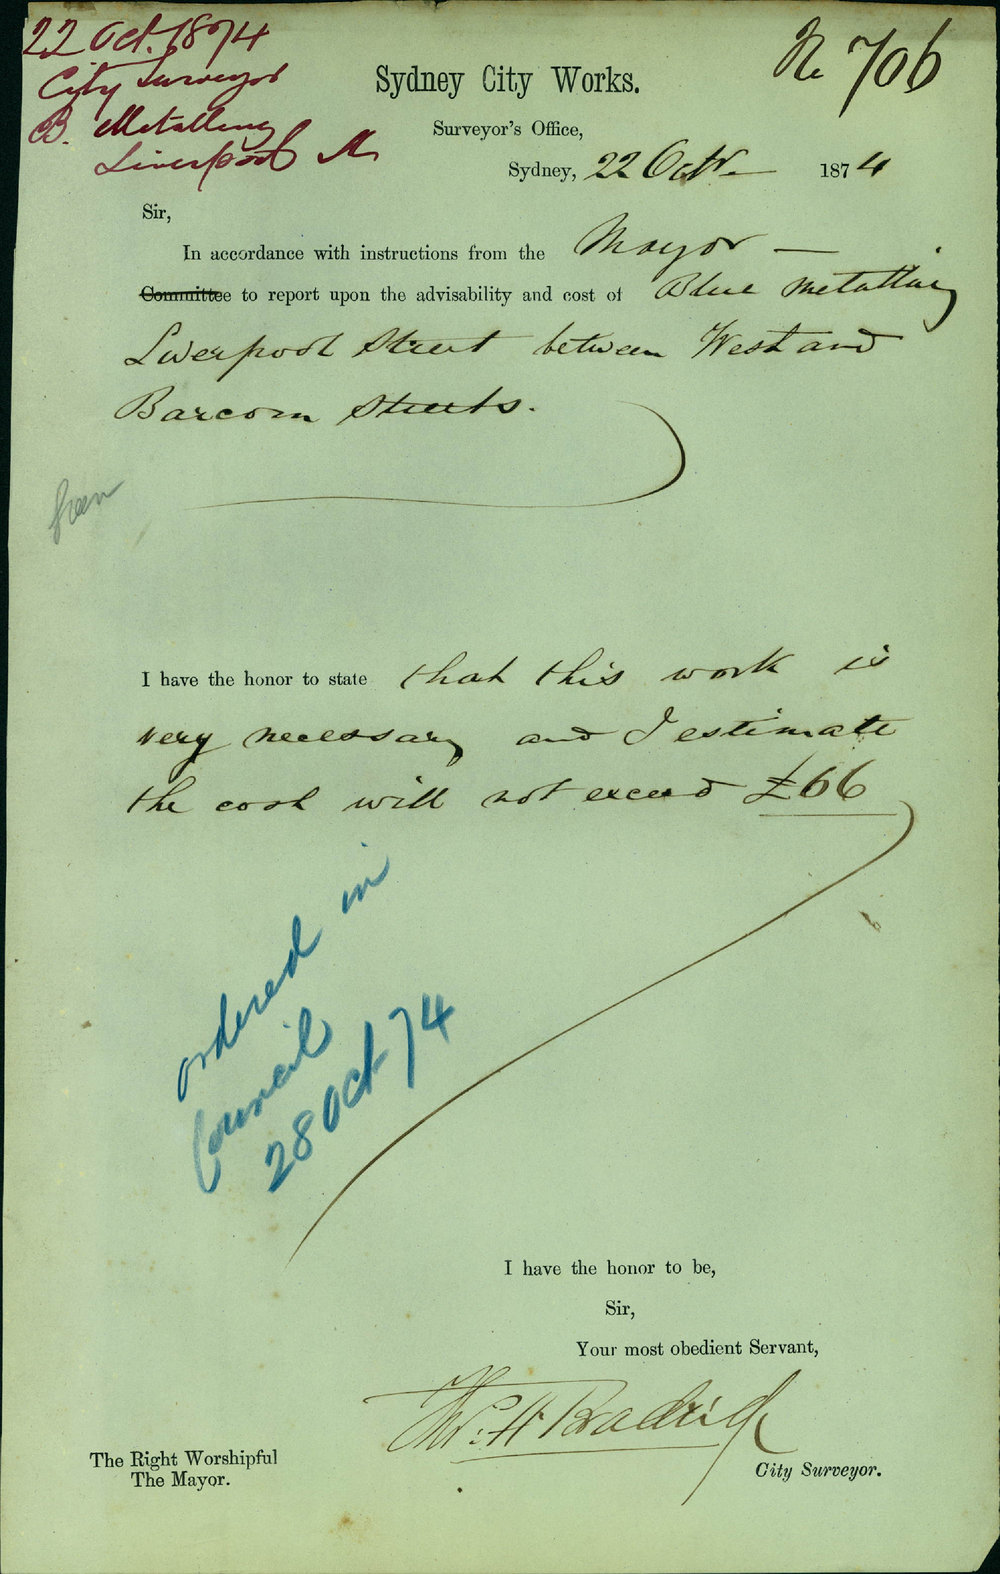 22 Oct. 1874
City Surveyor
B. Metalling
Liverpool St
No 706
Sydney City Works.
Surveyor's Office,
Sydney, 22 Octr 1874
Sir,
In accordance with instructions from the Mayor —
Committee to report upon the advisability and cost of Blue Metalling
Liverpool Street between West and
Barcom Streets.
I have the honor to state that this work is
very necessary and I estimate
the cost will not exceed £66
ordered in
Council
28 Oct 74
I have the honor to be,
Sir,
Your most obedient Servant,
City Surveyor.
The Right Worshipful
The Mayor.